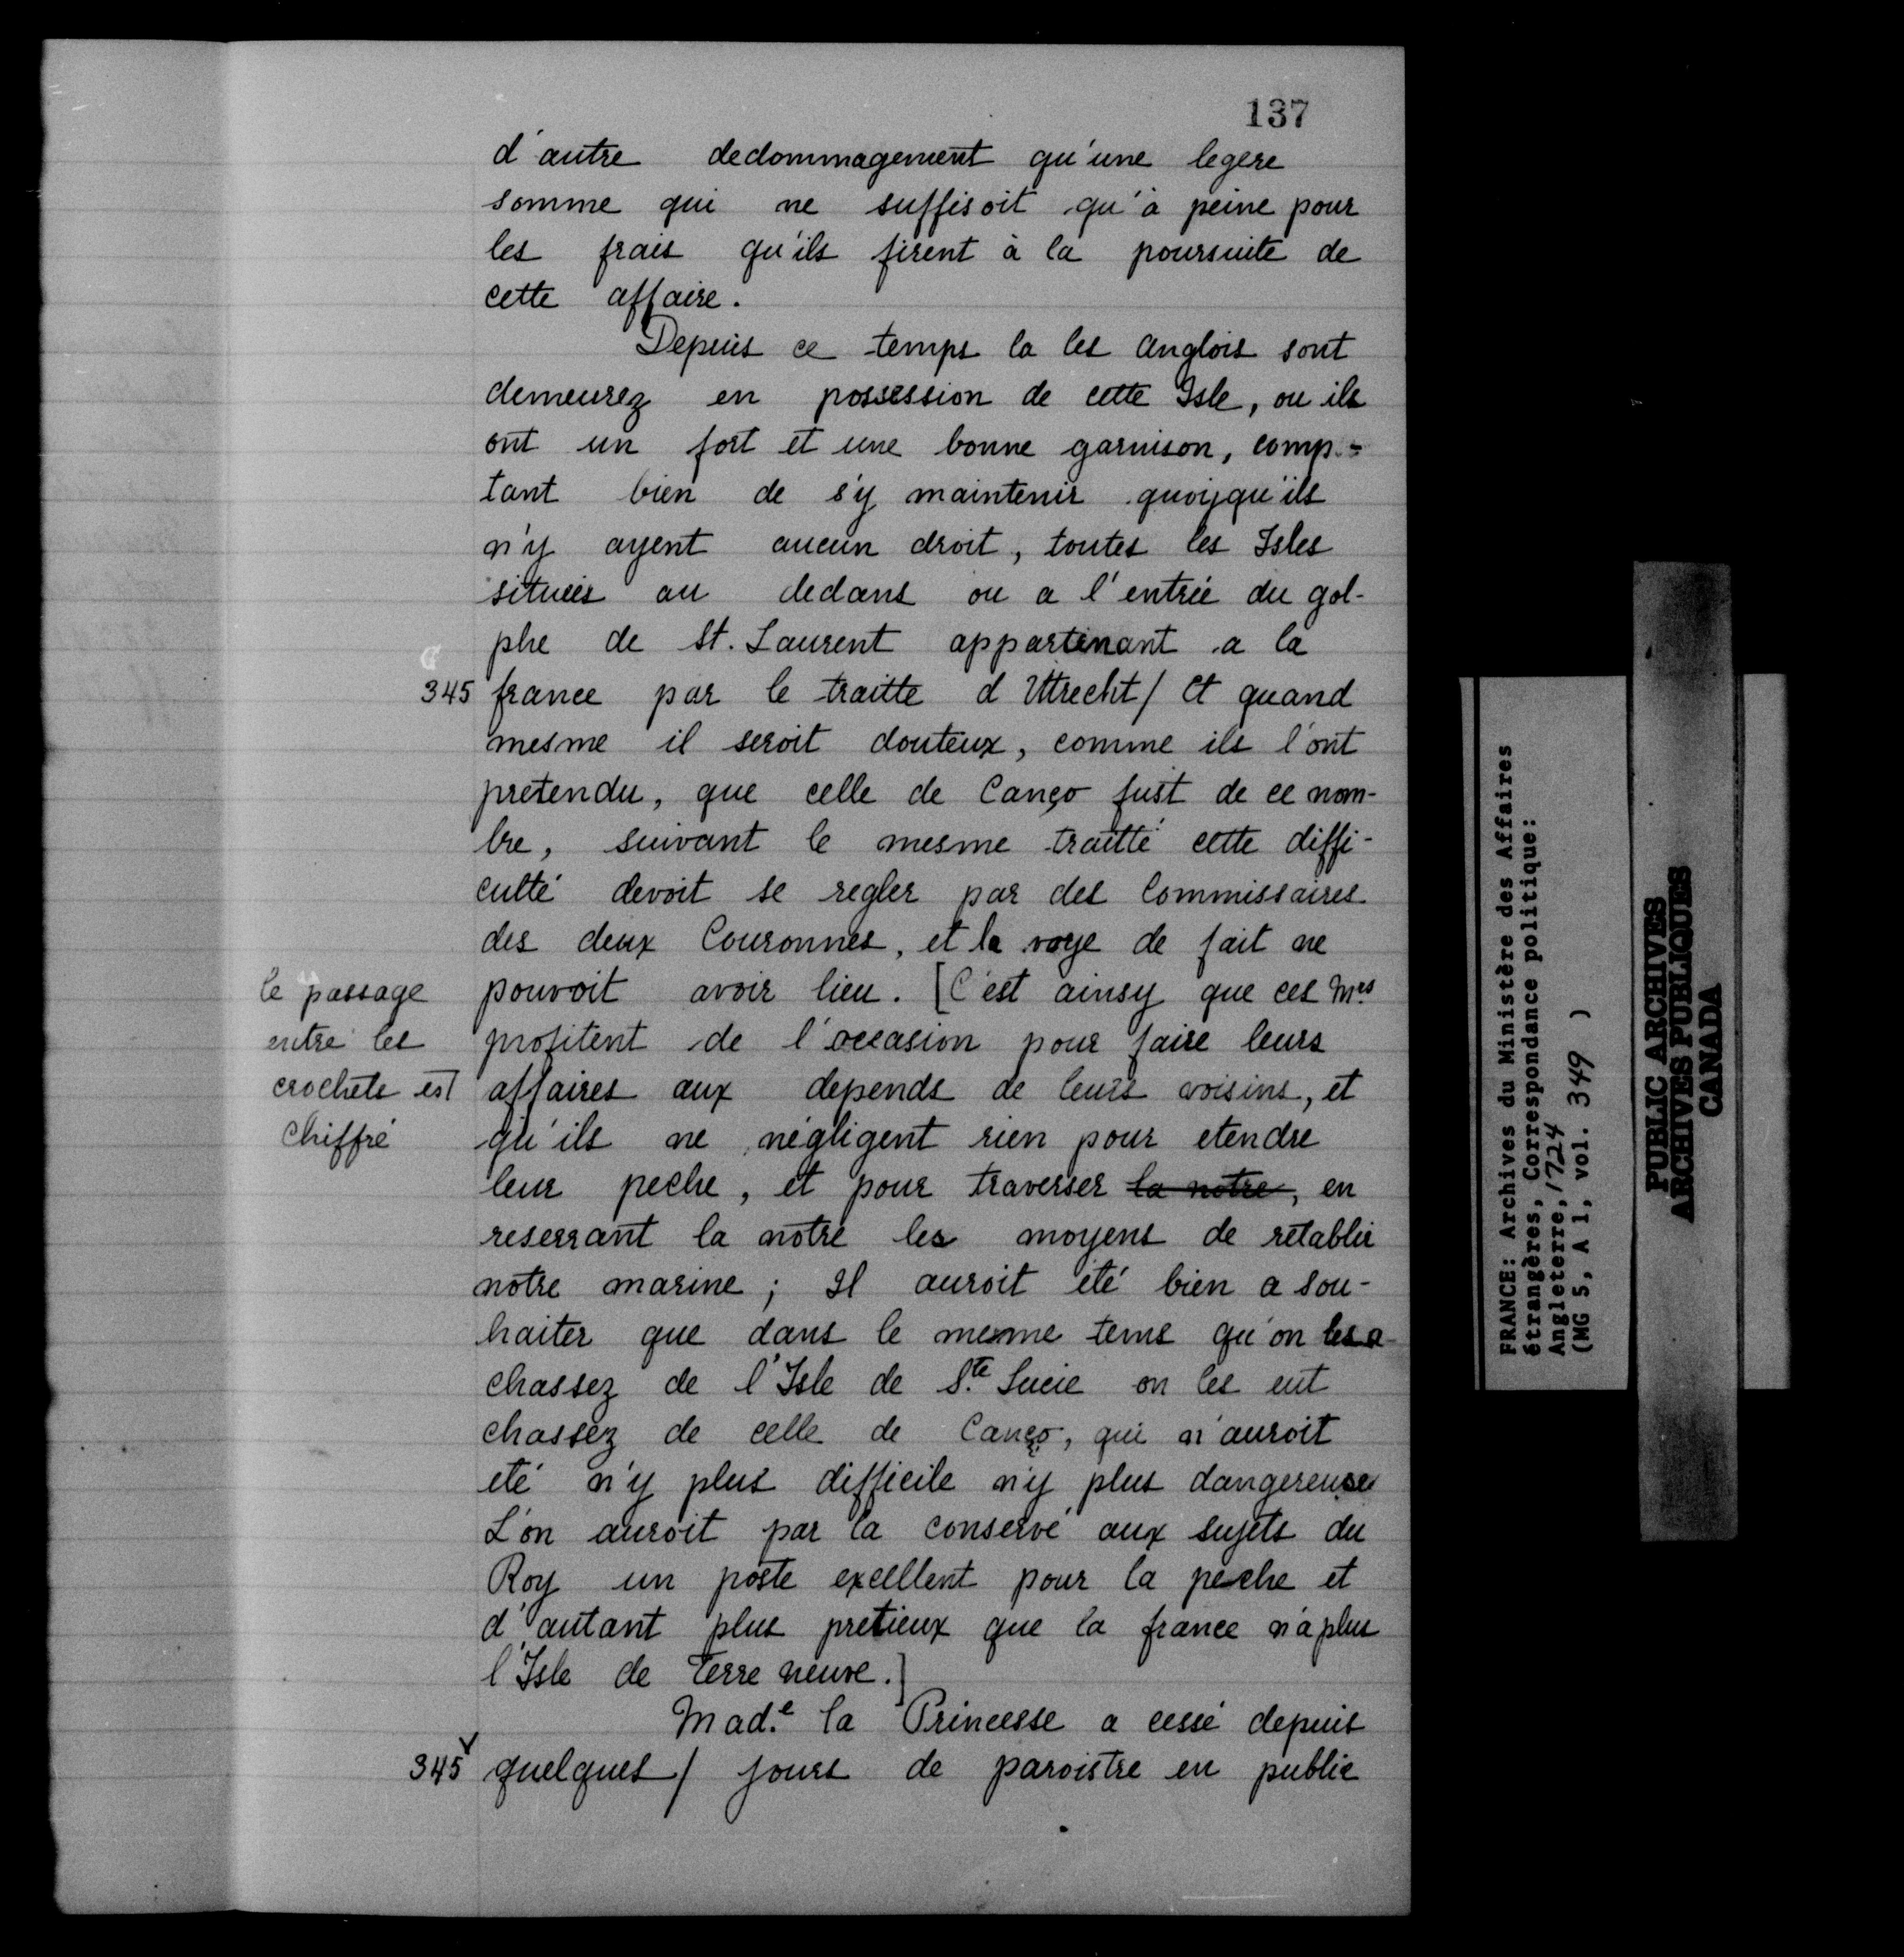 137
d'autre dedommagement qu'une legere
somme qui ne suffisoit qu'à peine pour
les frais qu'ils firent à la poursuite de
cette affaire.
Depuis ce temps la les anglois sont
demeurez en possession de cette Isle, ou ils
ont un fort et une bonne garnison, comp-
tant bien de s'y maintenir quoyqu'ils
n'y ayent aucun droit, toutes les Isles
situées au dedans ou a l'entrée du gol-
phe de St. Laurent appartenant a la
345 france par le traitte d Uttrecht/ Et quand
mesme il seroit douteux, comme ils l'ont
pretendu, que celle de Canço fust de ce nom-
bre, suivant le mesme traitté cette diffi-
culté devoit se regler par des Commissaires
des deux Couronnes, et la voye de fait ne
pouvoit avoir lieu. [C'est ainsy que ces Mrs
profitent de l'occasion pour faire leurs
affaires aux depends de leurs voisins, et
qu'ils ne négligent rien pour etendre
leur peche, et pour traverser la notre, en
reserrant la notre les moyens de retablir
notre marine; Il auroit été bien a sou-
haiter que dans le mesme tems qu'on les a
chassez de l'Isle de Ste Lucie on les eut
chassez de celle de Canço, qui n'auroit
eté n'y plus difficile n'y plus dangereuse
L'on auroit par la conservé aux sujets du
Roy un poste excellent pour la peche et
d'autant plus pretieux que la france n'a plus
l'Isle de Terre neuve.]
Mad.e la Princesse a cessé depuis
345v quelques/ jours de paroistre en public
le passage
entre les
crochets est
chiffré
FRANCE: Archives du Ministère des Affaires
étrangères, Correspondance politique:
Angleterre, 1724
(MG 5, A 1, vol. 349 )
PUBLIC ARCHIVES
ARCHIVES PUBLIQUES
CANADA